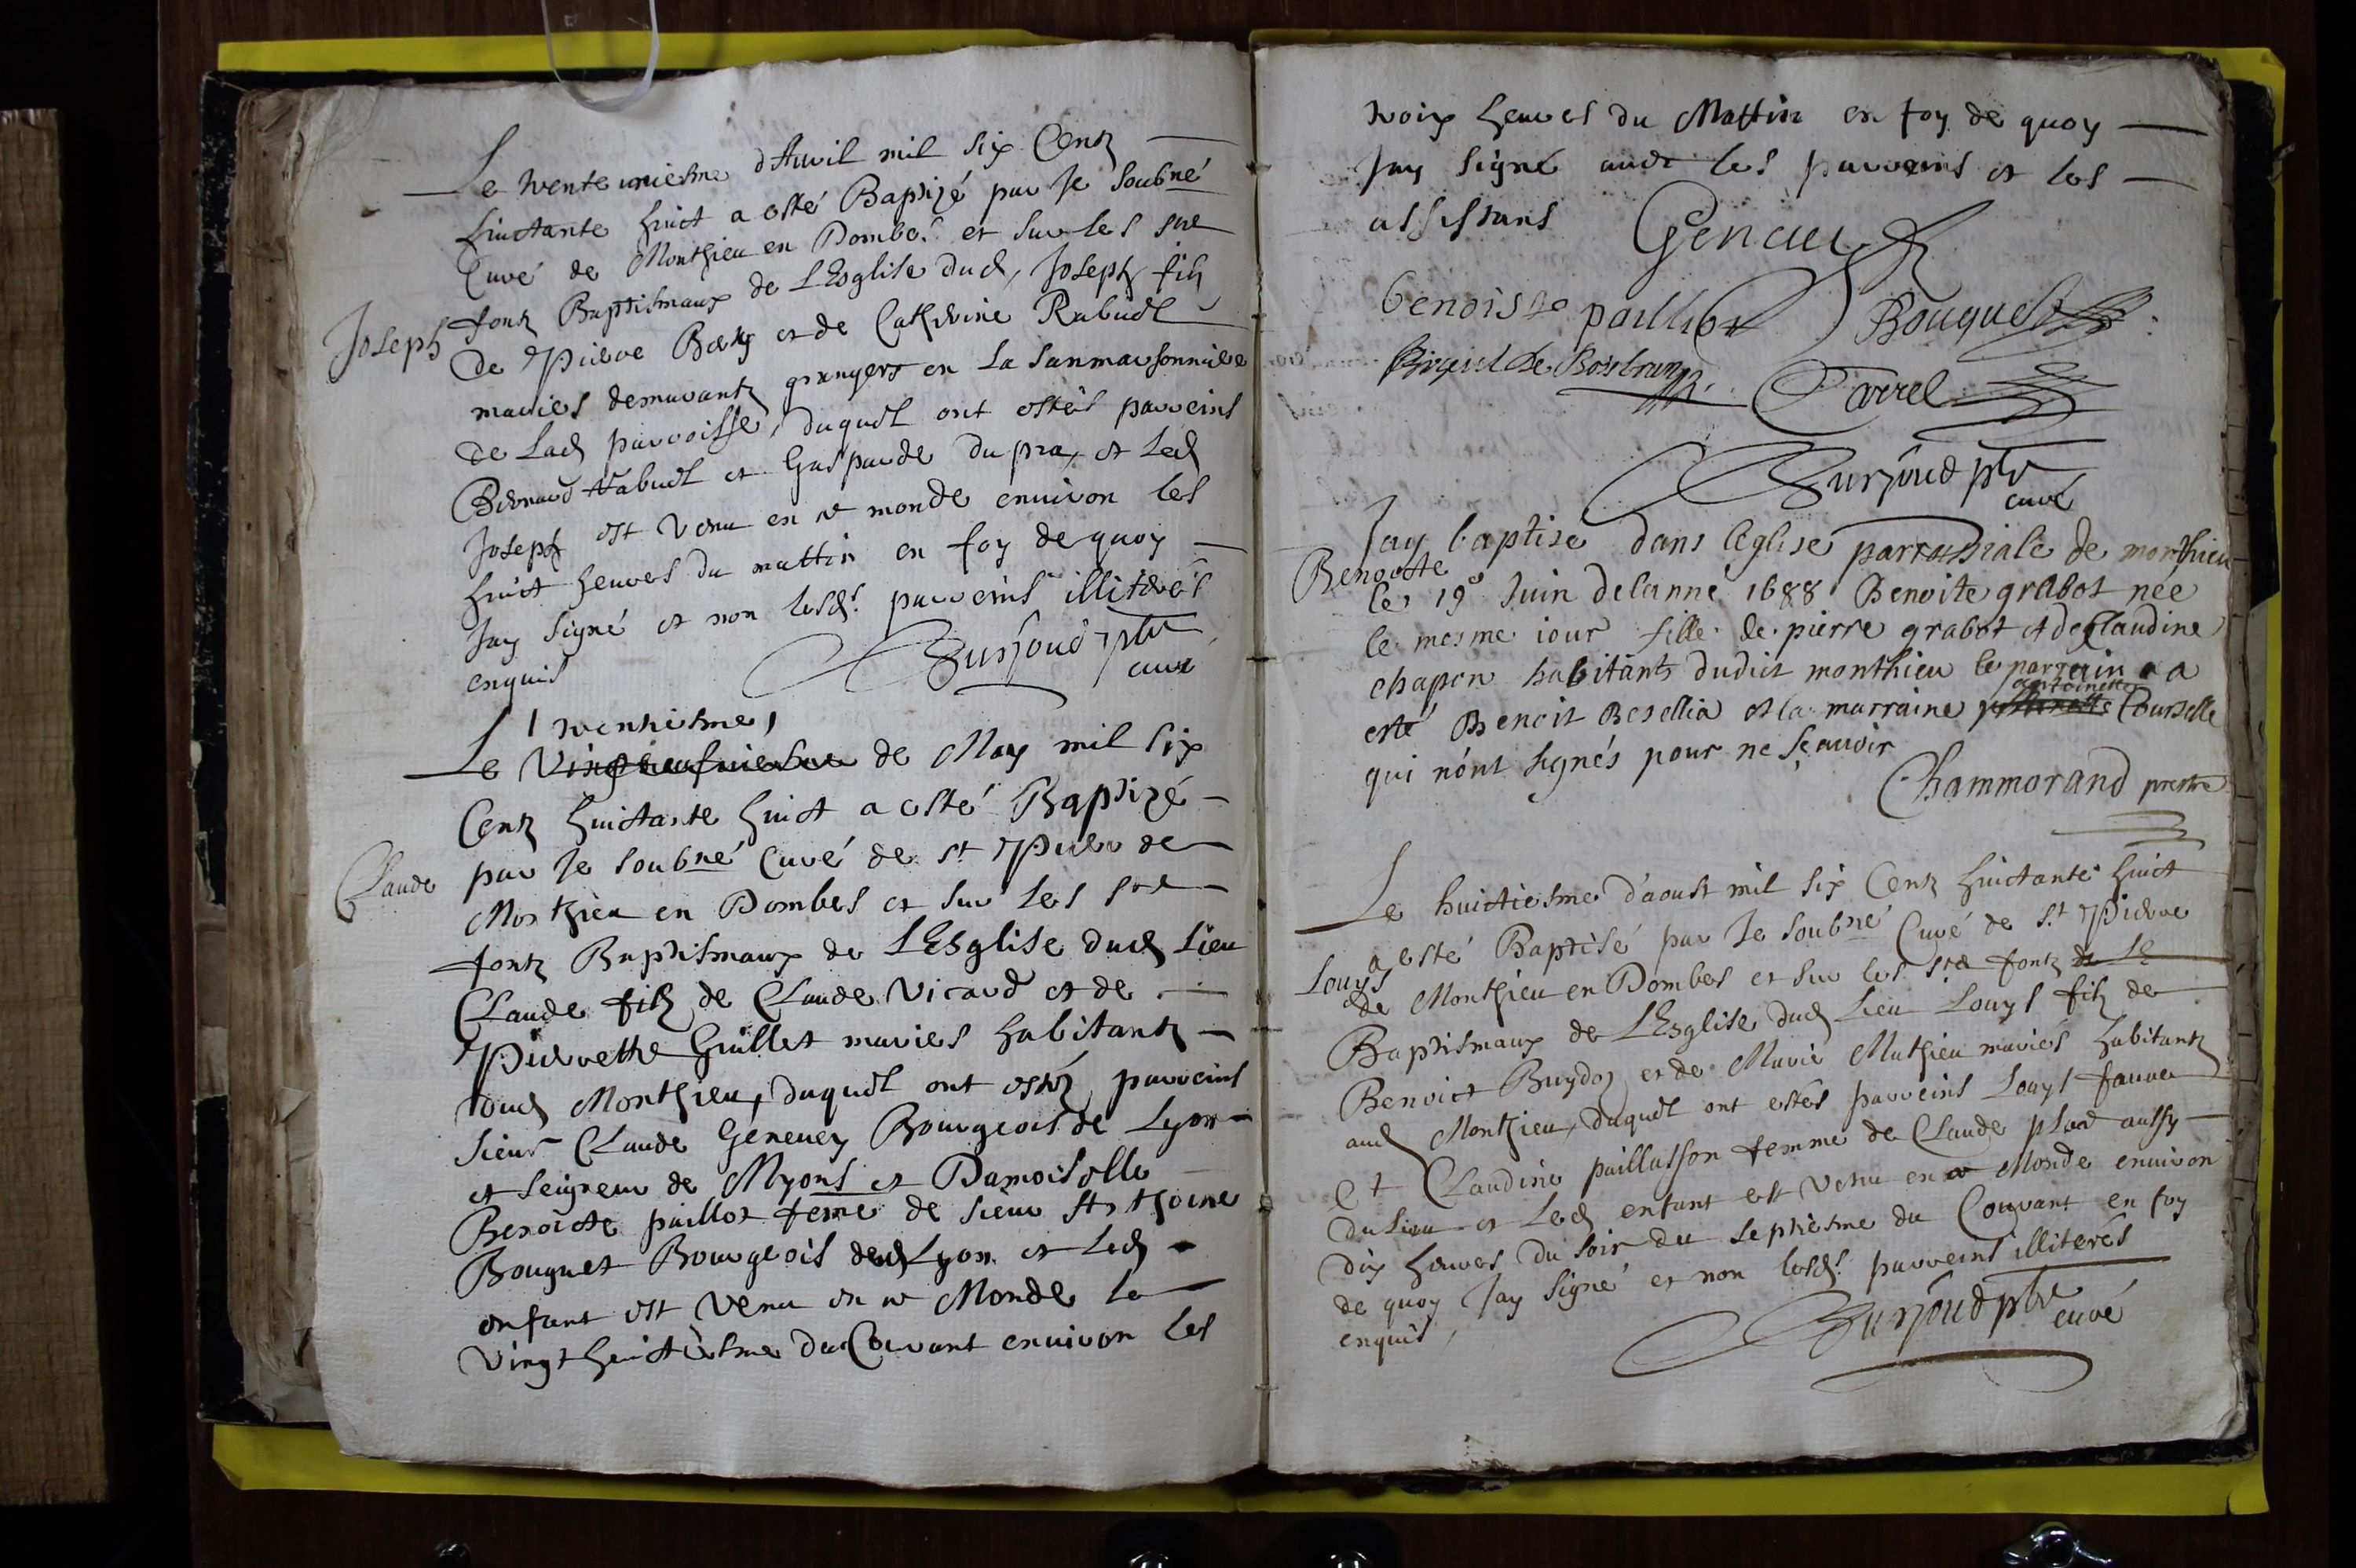 Le trente uniesme d'Avril mil six Centz
huictante huict a esté Baptizé par Je soubné
Curé de Monthieu en Dombes et sur les stes
Joseph
fontz Baptismaux de L'Esglise dud, Joseph filz
de Pierre et de Catherine Rabuel
maries demurantz grangers en La
de Lad parroisse, duquel ont estés parreins
Bernard Rabuel et Gasparde du pra, et Led
Joseph est venu en ce monde environ les
huict heures du mattin en foy de quoy
Jay signé et non lesds. parreins illiterés
enquis Surjoud ptre
curé
trentiesme,
Le Vingtneufviesme de May mil six
Centz huictante huict a esté Baptizé
Claude
par Je soubné Curé de st Pierre de
Monthieu en Dombes et sur les stes
fontz Baptismaux de L'Esglise dud Lieu
Claude filz de Claude Vicard et de
Pierrette Guillet maries habitantz
dud Monthieu, duquel ont estéz parreins
sieur Claude Geneuey Bourgeois de Lyon
et seigneur de Myons et Damoiselle
Benoicte paillot feme de sieur Anthoine
Bouquet Bourgeois dud Lyon et Led
enfant est venu en ce Monde Le
vingt huictiesme du Courant environ les
trois heures du Mattin en foy de quoy
Jay signé avec les parreins et les
assistans
benoiste paillot Bouquet
Carrel
Surjoud ptre
curé
Benoite
Jay baptisé dans l'eglise parrochiale de monthieu
le 19e Juin de lanné 1688 Benoite grabot née
le mesme iour fille de pierre grabot et de Claudine
chapon habitants dudit monthieu le parrein a
antoinette
esté Benoit et la marraine
qui n'ont signés pour ne sçavoir
Chammorand prestre
Le huictiesme d'aoust mil six Centz huictante huict
Louys
a esté Baptisé par Je soubné Curé de st Pierre
de Monthieu en Dombes et sur les stes fontz de L'E
Baptismaux de L'Esglise dud Lieu Louys filz de
Benoict et de Marie Mathieu mariés habitantz
aud Monthieu, duquel ont estés parreins Louys
Et Claudine paillasson femme de Claude aussy
du Lieu et Led enfant est venu en ce Monde environ
dix heures du soir du septiesme du Courant en foy
de quoy Jay signé et non lesds. parreins illiterés
enquis, Surjoud ptre
curé